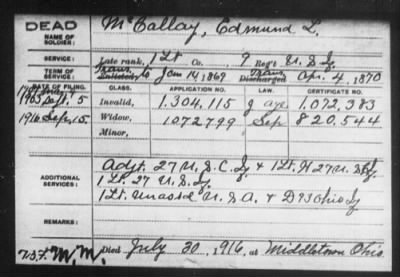 DEAD
NAME OF SOLDIER: McCallay, Edmund L.
SERVICE: Late rank, 1 Lt Co., 9 Reg't U.S. Iy.
TERM OF SERVICE: Enlisted Trans. to Jan 14, 1869 Discharged Trans. Apr. 4, 1870
DATE OF FILING. CLASS. APPLICATION NO. LAW. CERTIFICATE NO.
1905 Sept. 5 Invalid, 1.304.115 g age 1.072.383
1916 Sep. 15. Widow, 1072799 Sep 820,544
Minor,
ADDITIONAL SERVICES: Adjt. 27 U.S.C.Iy. & 1 Lt. H 27 U.S. Iy.
1 Lt. 27 U.S. Iy.
1 Lt. Unassd U.S.A. & D 93 Ohio Iy
REMARKS:
M.M. Died July 30, 1916, at Middletown Ohio